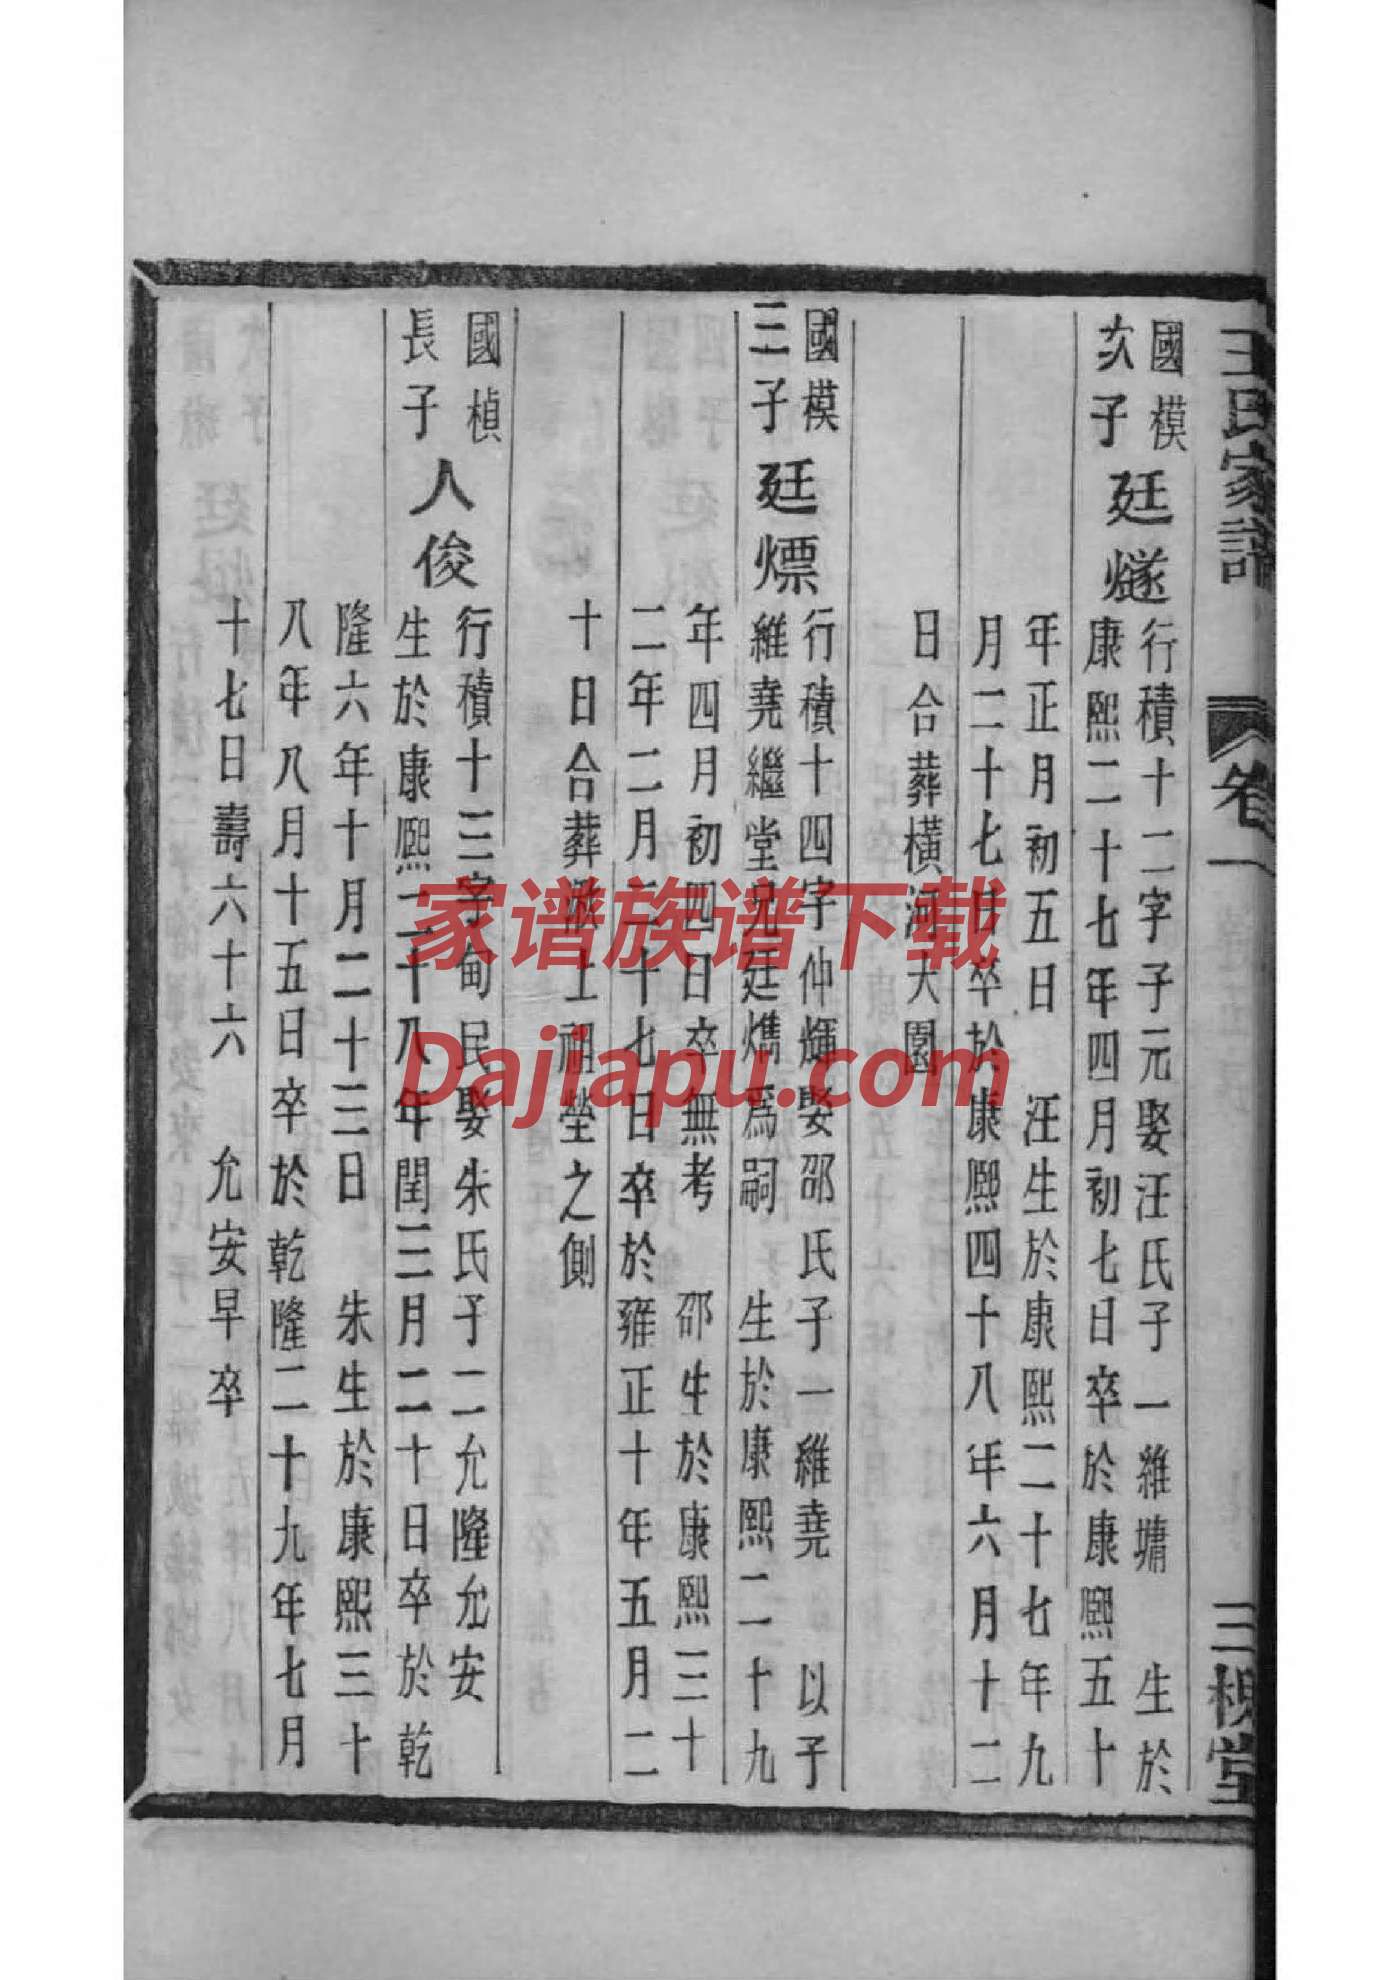 王氏家譜 卷一 三槐堂
國模
次子
廷燧
行積十二字子元娶汪氏子一維墉 生於
康熙二十七年四月初七日卒於康熙五十
年正月初五日 汪生於康熙二十七年九
月二十七日卒於康熙四十八年六月十二
日合葬橫河大園
國模
三子
廷熛
行積十四字仲輝娶邵氏子一維堯 以子
維堯繼堂兄廷㷪爲嗣 生於康熙二十九
年四月初四日卒無考 邵生於康熙三十
二年二月二十七日卒於雍正十年五月二
十日合葬 上祖塋之側
國楨
長子
人俊
行積十三字甸民娶朱氏子二允隆允安
生於康熙二十八年閏三月二十日卒於乾
隆六年十月二十三日 朱生於康熙三十
八年八月十五日卒於乾隆二十九年七月
十七日壽六十六 允安早卒
家谱族谱下载
Dajiapu.com